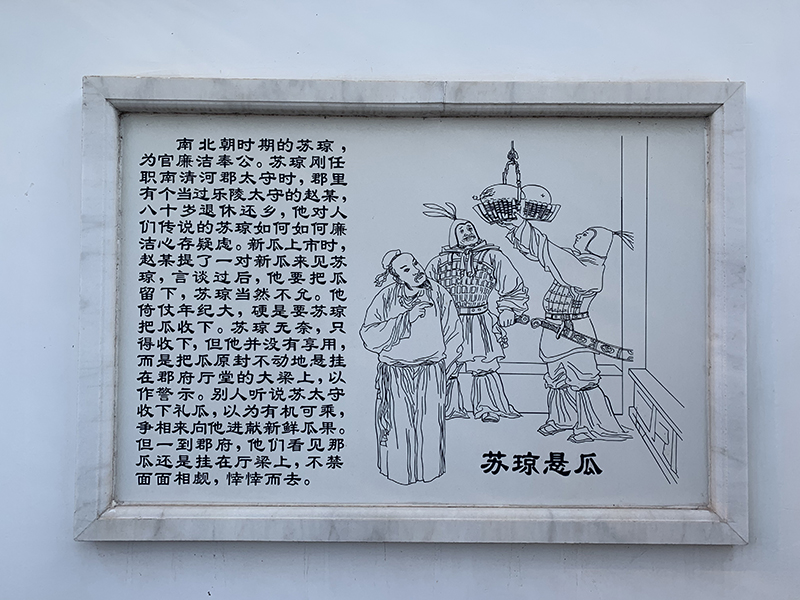 南北朝时期的苏琼，
为官廉洁奉公。苏琼刚任
职南清河郡太守时，郡里
有个当过乐陵太守的赵某，
八十岁退休还乡，他对人
们传说的苏琼如何如何廉
洁心存疑虑。新瓜上市时，
赵某提了一对新瓜来见苏
琼，言谈过后，他要把瓜
留下，苏琼当然不允。他
倚仗年纪大，硬是要苏琼
把瓜收下。苏琼无奈，只
得收下，但他并没有享用，
而是把瓜原封不动地悬挂
在郡府厅堂的大梁上，以
作警示。别人听说苏太守
收下礼瓜，以为有机可乘，
争相来向他进献新鲜瓜果。
但一到郡府，他们看见那
瓜还是挂在厅梁上，不禁
面面相觑，悻悻而去。
苏琼悬瓜